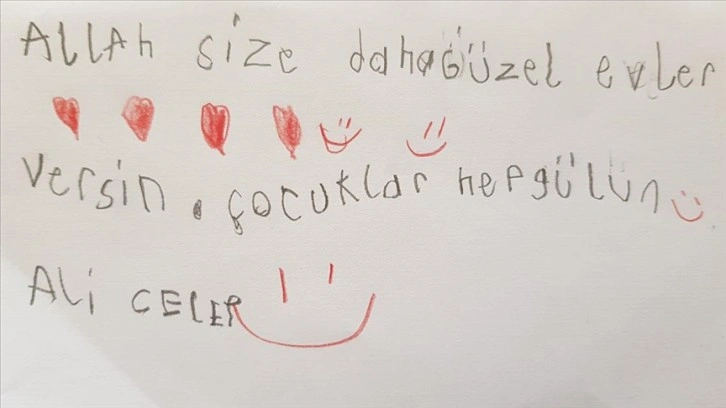 ALLAh size dahaGüzel evler
versin. çocuklar hepgülün
Ali CELEP